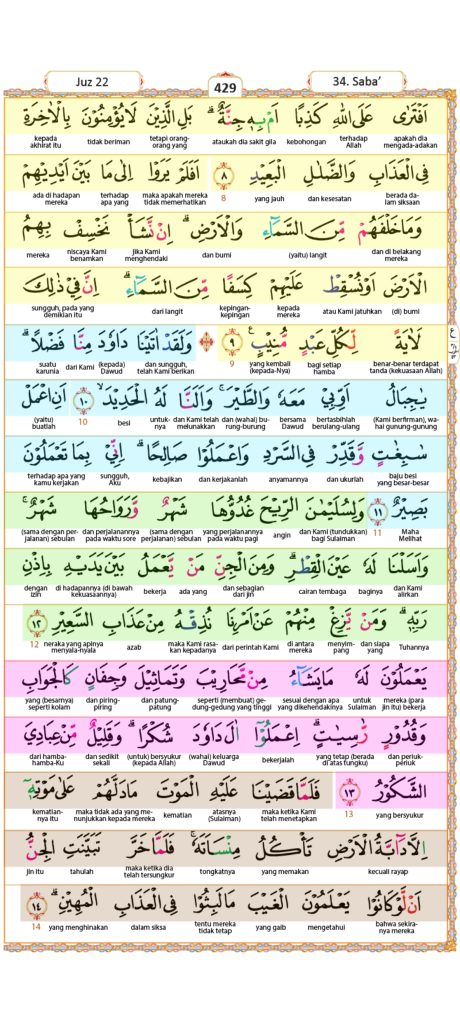 Juz 22
429
34. Saba’
اَفْتَرٰى عَلَى اللّٰهِ كَذِبًا اَمْ بِهٖ جِنَّةٌ ۗ بَلِ الَّذِيْنَ لَا يُؤْمِنُوْنَ بِالْاٰخِرَةِ
apakah dia mengada-adakan terhadap Allah kebohongan ataukah dia sakit gila tetapi orang-orang yang tidak beriman kepada akhirat itu
فِى الْعَذَابِ وَالضَّلٰلِ الْبَعِيْدِ ٨ اَفَلَمْ يَرَوْا اِلٰى مَا بَيْنَ اَيْدِيْهِمْ
berada dalam siksaan dan kesesatan yang jauh 8 maka apakah mereka tidak memerhatikan terhadap apa yang ada di hadapan mereka
وَمَا خَلْفَهُمْ مِّنَ السَّمَاۤءِ وَالْاَرْضِ ۗ اِنْ نَّشَأْ نَخْسِفْ بِهِمُ
dan di belakang mereka (yaitu) langit dan bumi jika Kami menghendaki niscaya Kami benamkan mereka
الْاَرْضَ اَوْ نُسْقِطْ عَلَيْهِمْ كِسَفًا مِّنَ السَّمَاۤءِ ۗ اِنَّ فِيْ ذٰلِكَ
(di) bumi atau Kami jatuhkan kepada mereka kepingan-kepingan dari langit sungguh, pada yang demikian itu
لَاٰيَةً لِّكُلِّ عَبْدٍ مُّنِيْبٍ ࣖ ٩ ۞ وَلَقَدْ اٰتَيْنَا دَاوٗدَ مِنَّا فَضْلًا ۗ
benar-benar terdapat tanda (kekuasaan Allah) bagi setiap hamba yang kembali (kepada-Nya) 9 dan sungguh, telah Kami berikan (kepada) Dawud dari Kami suatu karunia
يٰجِبَالُ اَوِّبِيْ مَعَهٗ وَالطَّيْرَ ۚ وَاَلَنَّا لَهُ الْحَدِيْدَ ۙ ١٠ اَنِ اعْمَلْ
(Kami berfirman), wahai gunung-gunung bertasbihlah berulang-ulang bersama Dawud dan (wahai) burung-burung dan Kami telah melunakkan untuknya besi 10 (yaitu) buatlah
سٰبِغٰتٍ وَّقَدِّرْ فِى السَّرْدِ وَاعْمَلُوْا صَالِحًا ۗ اِنِّيْ بِمَا تَعْمَلُوْنَ
baju besi yang besar-besar dan ukurlah anyamannya dan kerjakanlah kebajikan sungguh, Aku terhadap apa yang kamu kerjakan
بَصِيْرٌ ١١ وَلِسُلَيْمٰنَ الرِّيْحَ غُدُوُّهَا شَهْرٌ وَّرَوَاحُهَا شَهْرٌ ۚ
Maha Melihat 11 dan Kami (tundukkan) bagi Sulaiman angin yang perjalanannya pada waktu pagi (sama dengan perjalanan) sebulan dan perjalanannya pada waktu sore (sama dengan perjalanan) sebulan
وَاَسَلْنَا لَهٗ عَيْنَ الْقِطْرِ ۗ وَمِنَ الْجِنِّ مَنْ يَّعْمَلُ بَيْنَ يَدَيْهِ بِاِذْنِ
dan Kami alirkan baginya cairan tembaga dan sebagian dari jin ada yang bekerja di hadapannya (di bawah kekuasaannya) dengan izin
رَبِّهٖ ۗ وَمَنْ يَّزِغْ مِنْهُمْ عَنْ اَمْرِنَا نُذِقْهُ مِنْ عَذَابِ السَّعِيْرِ ١٢
Tuhannya dan siapa yang menyimpang di antara mereka dari perintah Kami maka Kami rasakan kepadanya azab neraka yang apinya menyala-nyala 12
يَعْمَلُوْنَ لَهٗ مَا يَشَاۤءُ مِنْ مَّحَارِيْبَ وَتَمَاثِيْلَ وَجِفَانٍ كَالْجَوَابِ
mereka (para jin itu) bekerja untuk Sulaiman sesuai dengan apa yang dikehendakinya seperti (membuat) gedung-gedung yang tinggi dan patung-patung dan piring-piring yang (besarnya) seperti kolam
وَقُدُوْرٍ رّٰسِيٰتٍ ۗ اِعْمَلُوْٓا اٰلَ دَاوٗدَ شُكْرًا ۗ وَقَلِيْلٌ مِّنْ عِبَادِيَ
dan periuk-periuk yang tetap (berada di atas tungku) bekerjalah (wahai) keluarga Dawud (untuk) bersyukur (kepada Allah) dan sedikit sekali dari hamba-hamba-Ku
الشَّكُوْرُ ١٣ فَلَمَّا قَضَيْنَا عَلَيْهِ الْمَوْتَ مَا دَلَّهُمْ عَلٰى مَوْتِهٖٓ
yang bersyukur 13 maka ketika Kami telah menetapkan atasnya (Sulaiman) kematian maka tidak ada yang menunjukkan kepada mereka kematiannya itu
اِلَّا دَاۤبَّةُ الْاَرْضِ تَأْكُلُ مِنْسَاَتَهٗ ۚ فَلَمَّا خَرَّ تَبَيَّنَتِ الْجِنُّ
kecuali rayap yang memakan tongkatnya maka ketika dia telah tersungkur tahulah jin itu
اَنْ لَّوْ كَانُوْا يَعْلَمُوْنَ الْغَيْبَ مَا لَبِثُوْا فِى الْعَذَابِ الْمُهِيْنِ ۗ ١٤
bahwa sekiranya mereka mengetahui yang gaib tentu mereka tidak tetap dalam siksa yang menghinakan 14